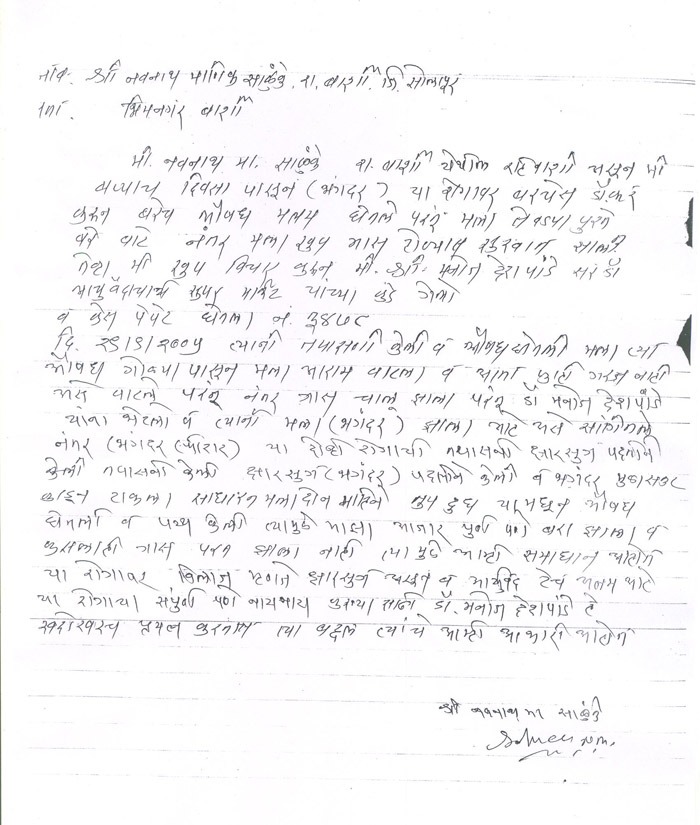 नांव. श्री नवनाथ माणिक साळुंके. रा. बार्शी जि. सोलापूर
भिमनगर बार्शी
मी. नवनाथ मा. साळुंके रा. बार्शी येथील रहिवाशी असून मी
बऱ्याच दिवसा पासून (भगंदर) या रोगावर बरयेस डॉक्टर
करून बरेच औषध मलम घेतले परंतू मला तेवढ्या पुरते
बरे वाटे नंतर मला खुप त्रास होव्याव सुरवात झाली
तेव्हा मी खुप विचार करून मी. श्री. मनोज देशपांडे सर डॉ
आयुर्वेदाचार्य सुपर मार्केट यांच्या कडे गेलो
व केस पेपर घेतला नं. ३४७८
दि. त्यांनी तपासणी केली व औषध घेतली मला त्या
औषध गोळ्या पासून मला आराम वाटला व आता काही गरज नाही
असे वाटले परंतू नंतर त्रास चालू झाला परंतू डॉ मनोज देशपांडे
यांना भेटलो व त्यांनी मला (भगंदर) झाला आहे असे सांगीतले
नंतर (भगंदर) या दोन्ही रोगाची तपासणी क्षारसुत्र पद्धतीने
केली तपासणी केली क्षारसुत्र (भगंदर) पद्धतीने केली व भगंदर
काढून टाकला साधारण मला दोन महिने तुप दुध यामधून औषध
घेतली व पथ्य केली त्यामुळे माझा आजार पुर्ण पणे बरा झाला व
कसलाही त्रास परत झाला नाही त्या मुळे आम्ही समाधान आहोत
या रोगावर म्हणजे क्षारसुत्र असून व आयुर्वेद हेच अमृत आहे
या रोगाचा संपुर्ण पणे नायनाट करण्या साठी डॉ. मनोज देशपांडे हे
खरोखरच प्रयत्न करतात त्या बद्दल त्यांचे आम्ही आभारी आहोत
श्री नवनाथ मा साळुंके